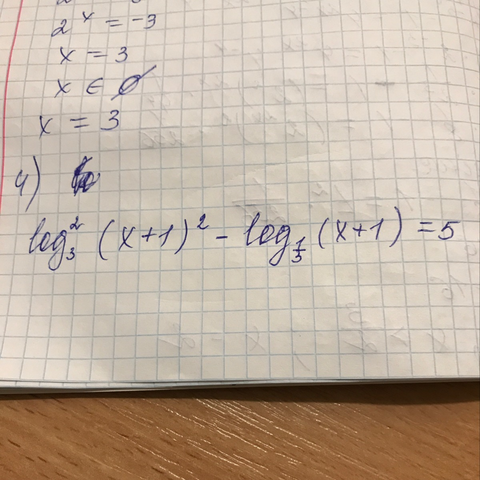 2^x = -3
x = 3
x ∈ ∅
x = 3
4)
log₃² (x+1)² - log_{1/3} (x+1) = 5